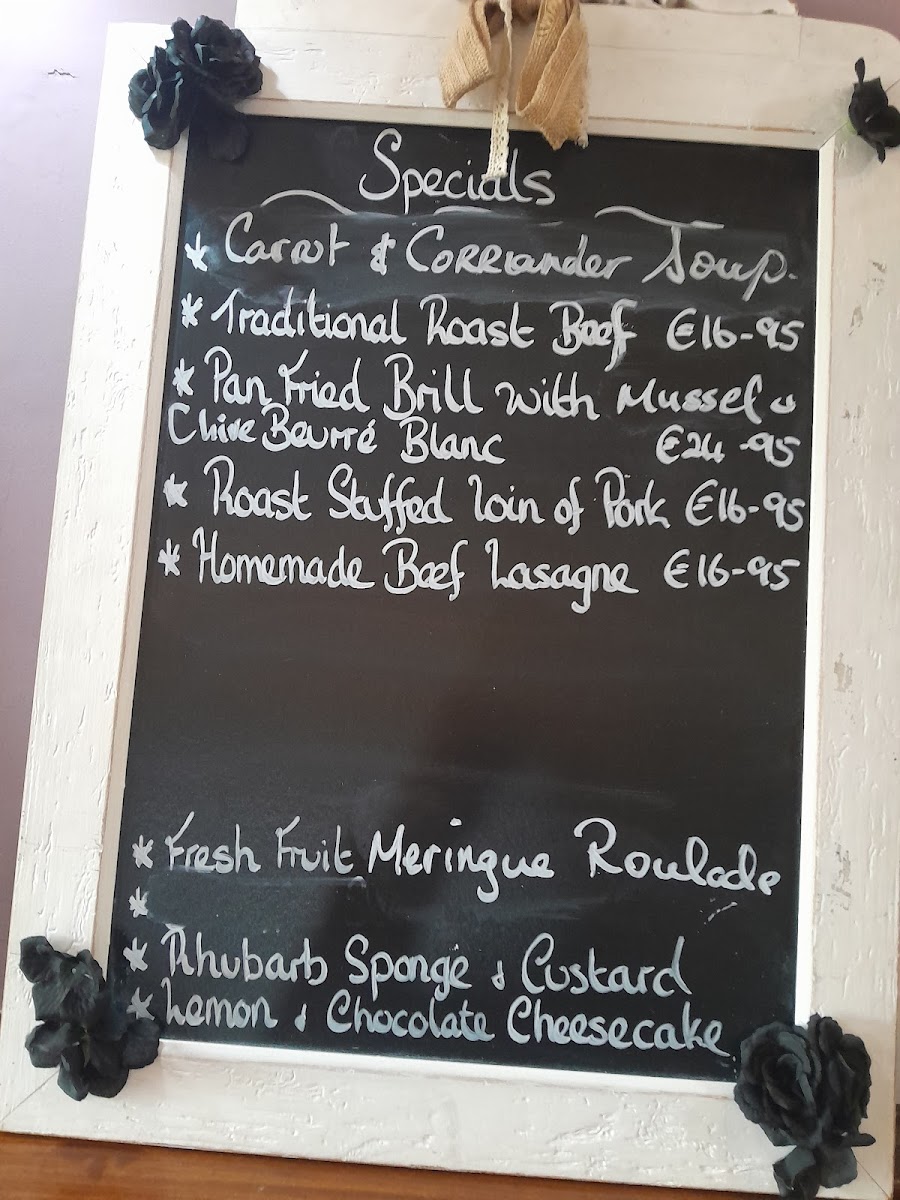 Specials
* Carrot & Corriander Soup.
* Traditional Roast Beef €16-95
* Pan Fried Brill with Mussel &
Chive Beurré Blanc €24-95
* Roast Stuffed Loin of Pork €16-95
* Homemade Beef Lasagne €16-95
* Fresh Fruit Meringue Roulade
*
* Rhubarb Sponge & Custard
* Lemon & Chocolate Cheesecake